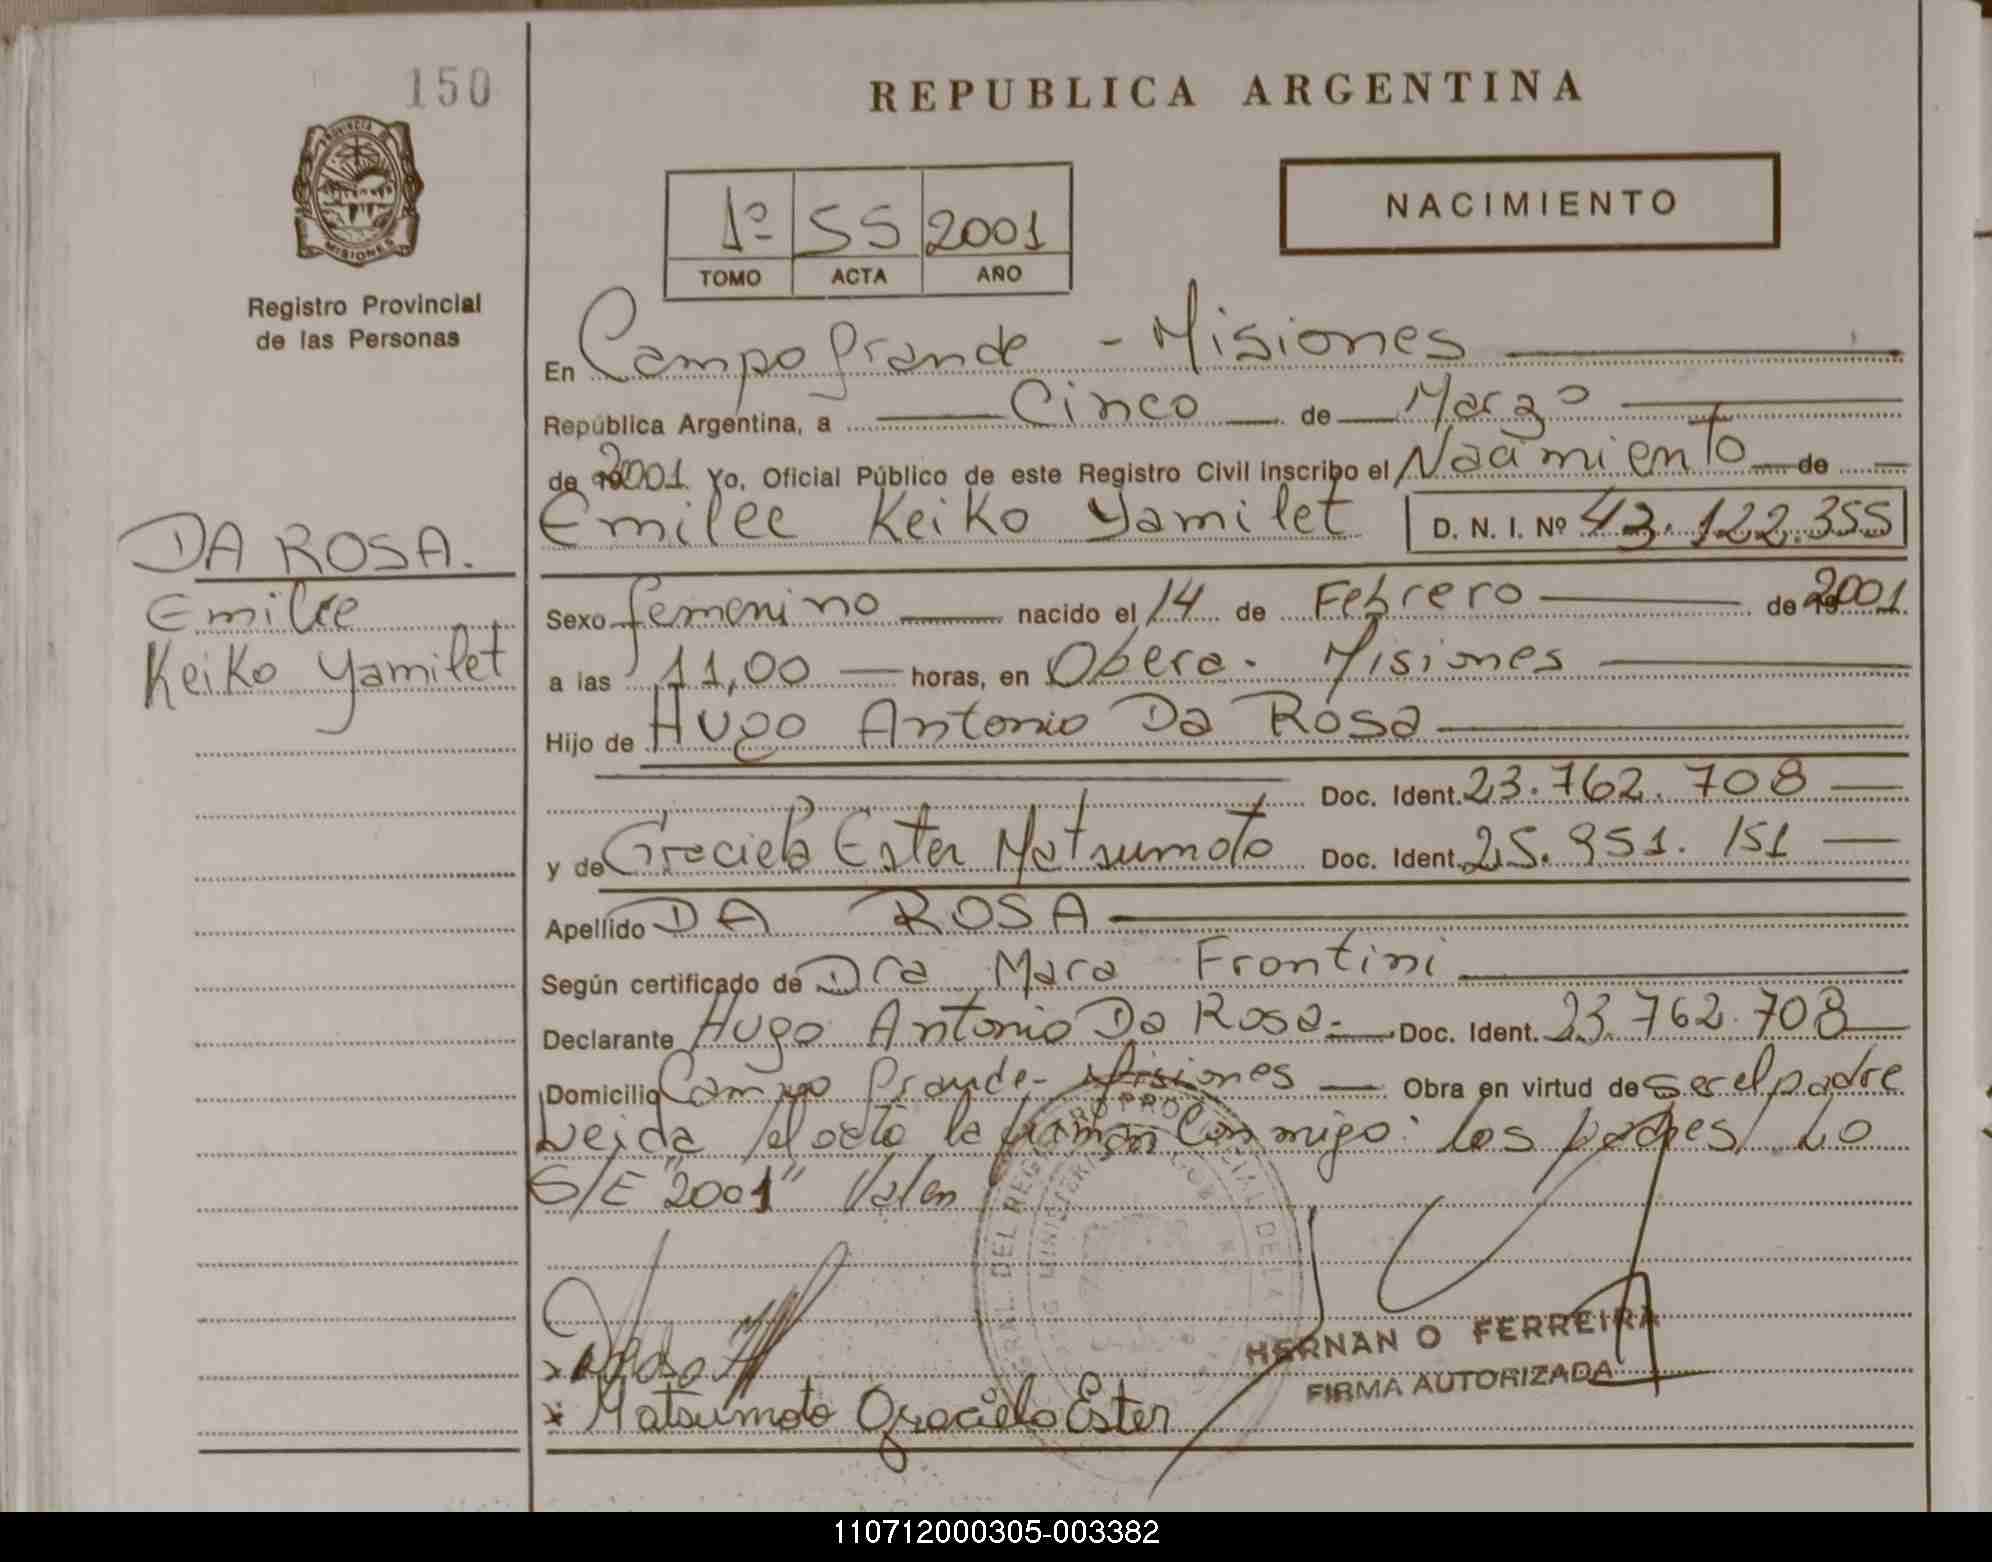 150
PROVINCIA DE
MISIONES
Registro Provincial
de las Personas
DA ROSA.
Emilce
Keiko Yamilet
REPUBLICA ARGENTINA
1º 55 2001
TOMO ACTA AÑO
NACIMIENTO
En Campo Grande - Misiones
República Argentina, a Cinco de Marzo
de 2001 Yo, Oficial Público de este Registro Civil inscribo el Nacimiento de
Emilce Keiko Yamilet D. N. I. Nº 43.122.355
Sexo femenino nacido el 14 de Febrero de 2001
a las 11,00 horas, en Obera - Misiones
Hijo de Hugo Antonio Da Rosa
Doc. Ident. 23.762.708
y de Graciela Ester Matsumoto Doc. Ident. 25.951.151
Apellido DA ROSA
Según certificado de Dra Mara Frontini
Declarante Hugo Antonio Da Rosa - Doc. Ident. 23.762.708
Domicilio Campo Grande - Misiones Obra en virtud de ser el padre
Leida el acta la firman Conmigo: los padres, Lo
S/E "2001" Valen
HERNAN O FERREIRA
FIRMA AUTORIZADA
x Matsumoto Graciela Ester
110712000305-003382